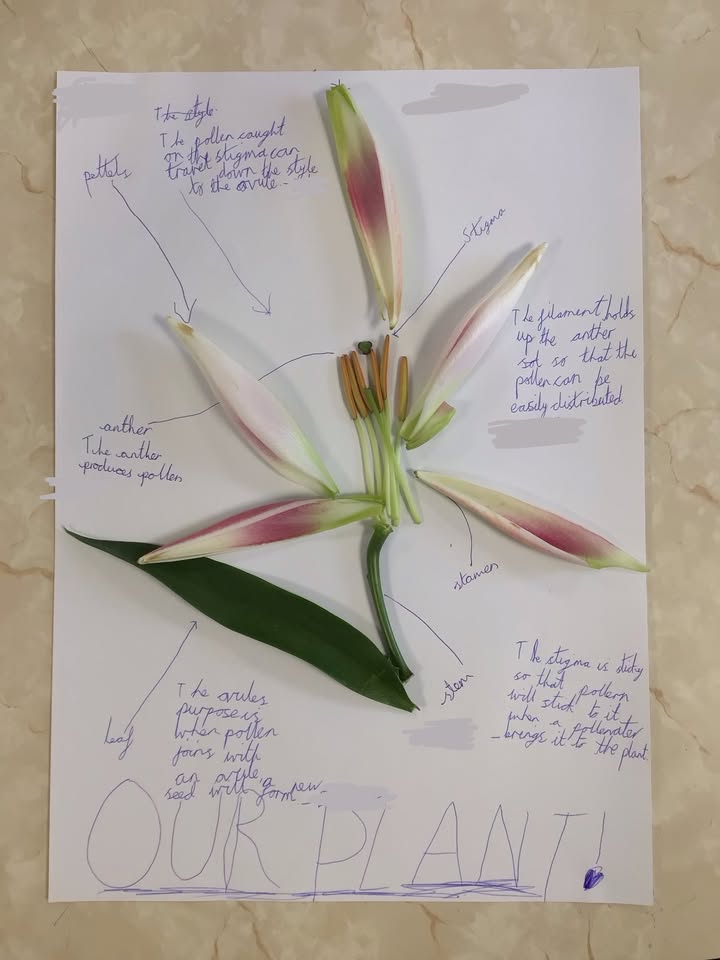 The style
The pollen caught
on the stigma can
travel down the style
to the ovule.
pettels
Stigma
The filament holds
up the anther
so that the
pollen can be
easily distributed
anther
The anther
produces pollen
stamen
stem
The stigma is sticky
so that pollern
will stick to it
when a pollenater
brings it to the plant.
leaf
The ovules
purpose is
when pollen
joins with
an ovule, a new
seed will form
OUR PLANT!